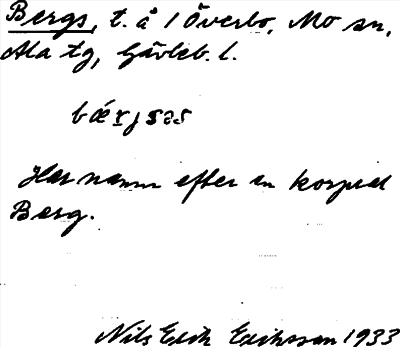 Bergs, t. å 1 Överbo, Mo sn,
Ala tg, Gävleb. l.
Har namn efter en korpral
Berg.
Nils Erik Eriksson 1933